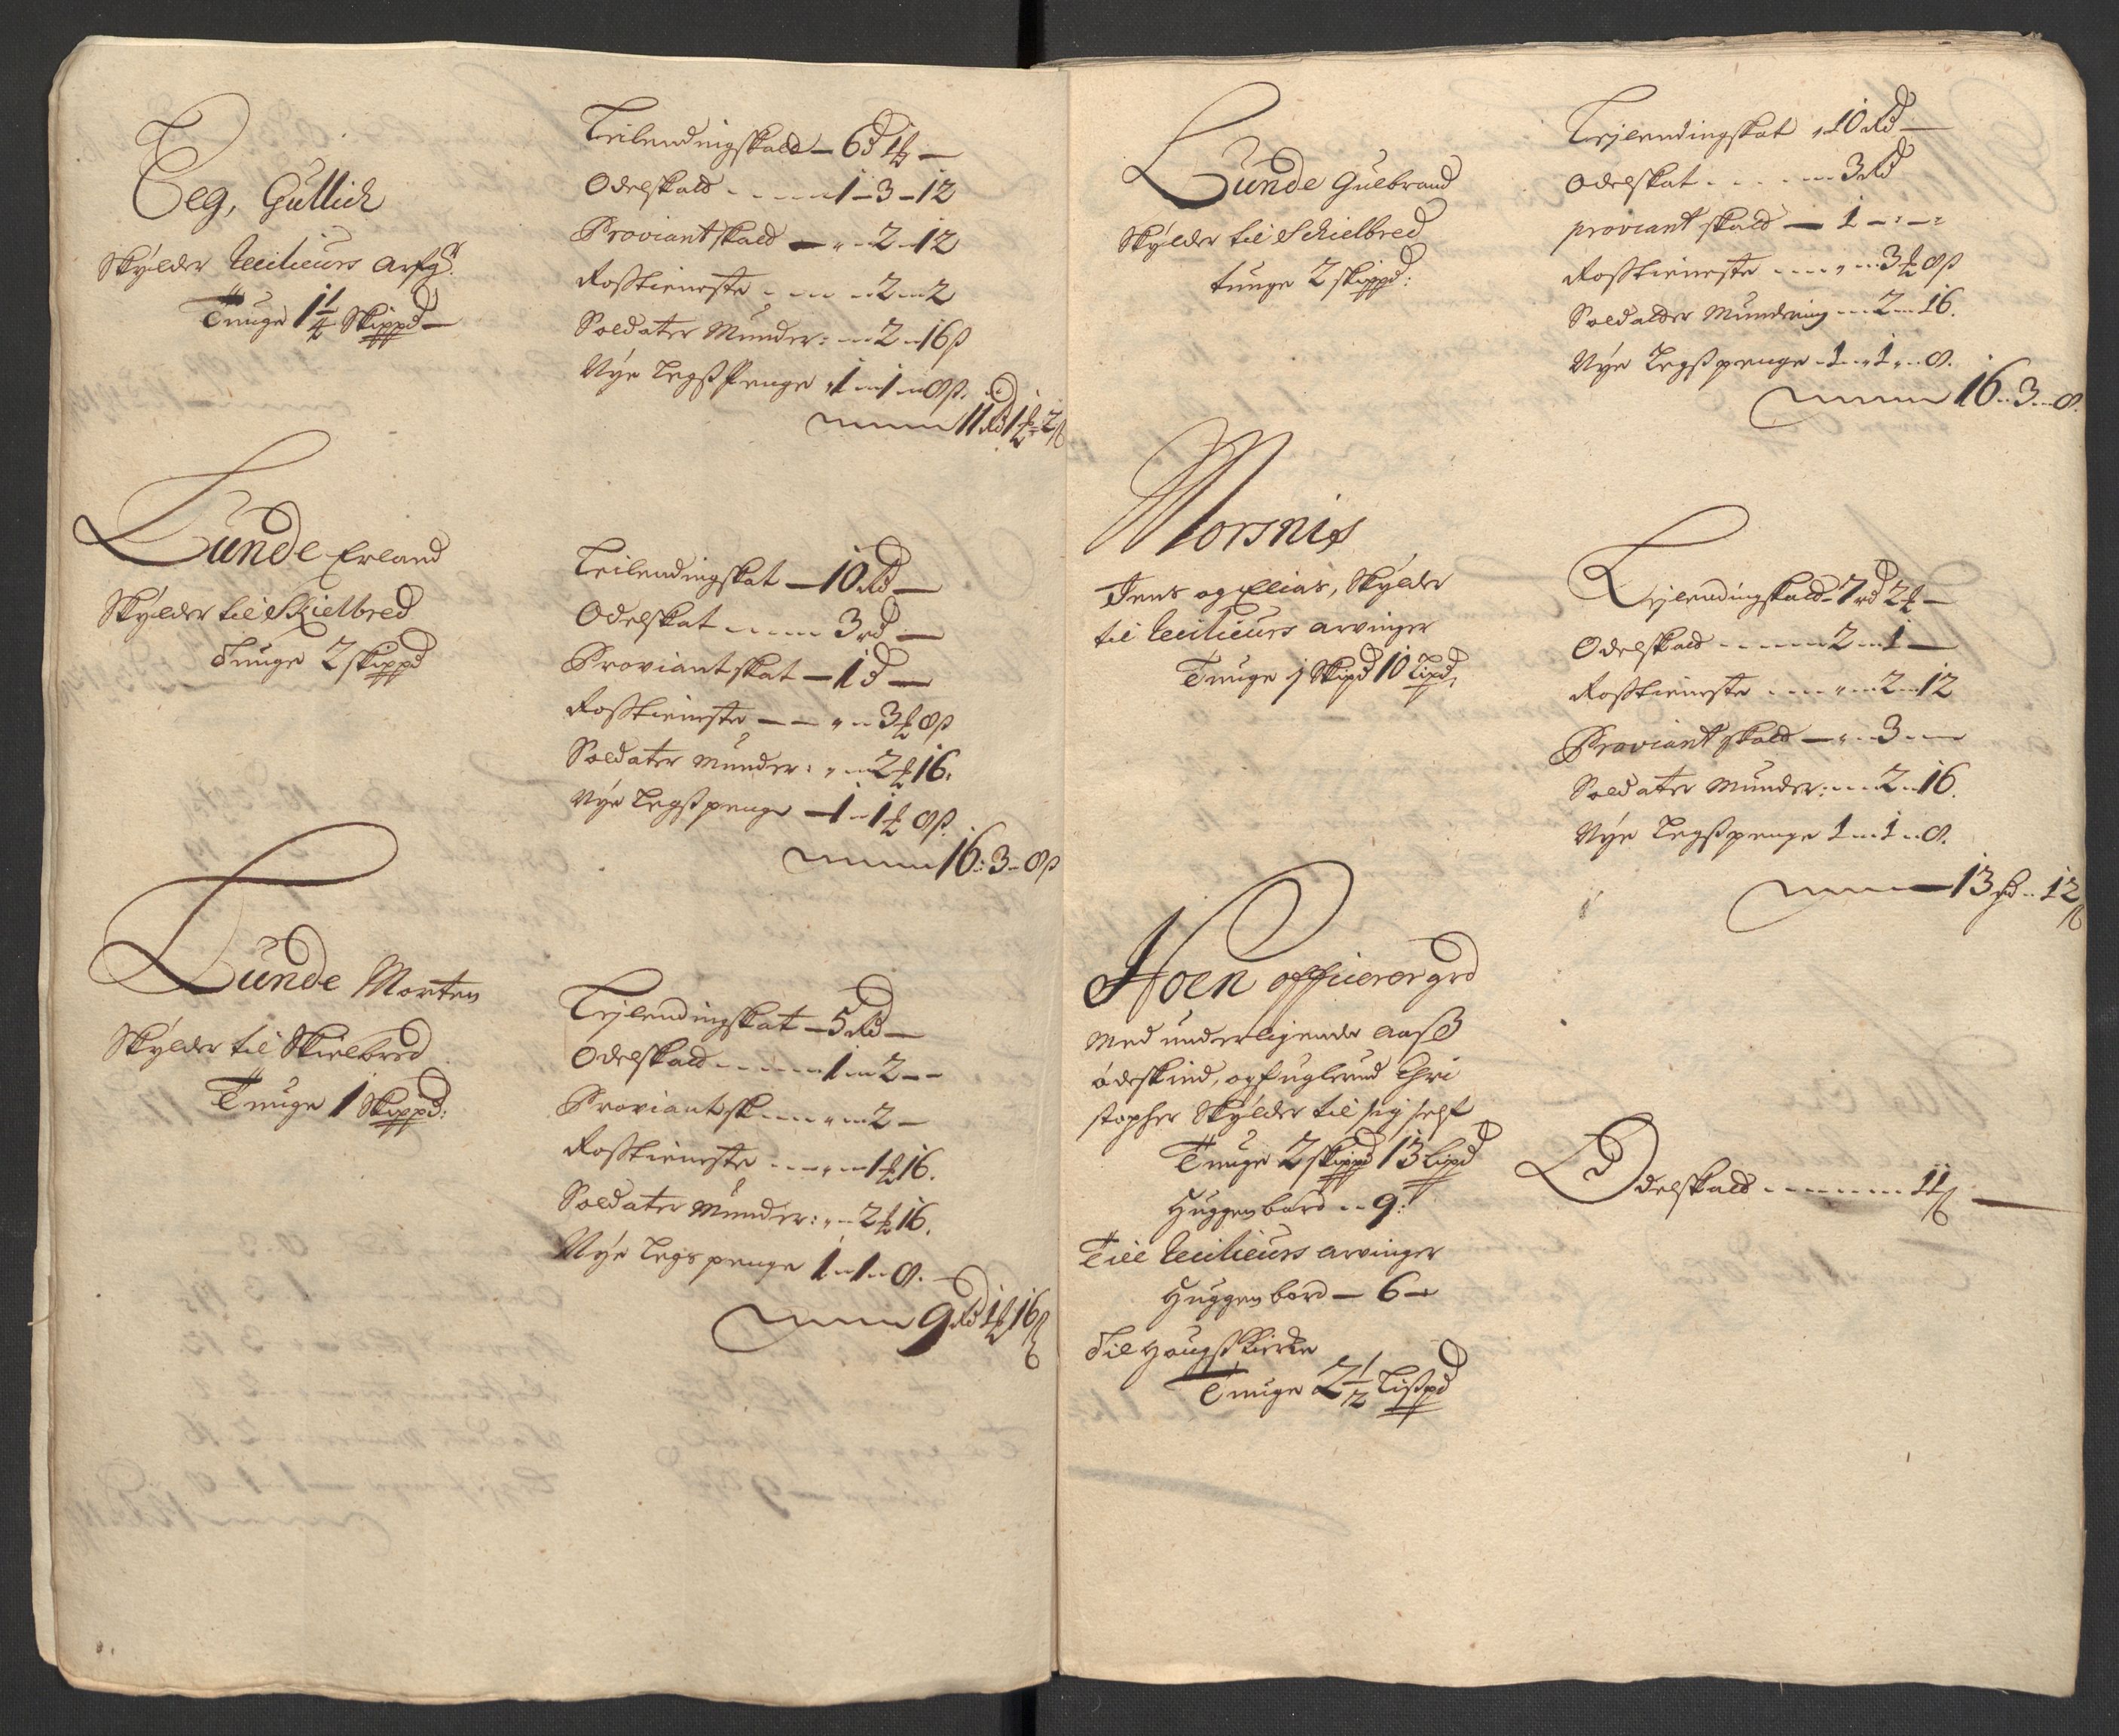 Teg, Gullich
Skylder Ceciliæus Arfg:
Tunge 1 1/4 Skippd
Leilendingskald – 6 d 1/2 –
Odelskald ---- 1 – 3 – 12
Proviantskald – „ – 2 – 12
Rosstieneste --- 2 – 2
Soldater Munder: – 2 – 16 ß
Nye Legß Penge „ 1 – 1 – 8 ß.
11 Rd 1 1/2 – 2 ß
Lunde Erland
Skylder til Skielbred
Tunge 2 skippd
Leilendingskat – 10 Rd –
Odelskat ---- 3 rd –
Proviantskat – 1 d –
Rosstieneste – – „ – 3 1/2 8 ß
Soldater munder: „ – 2 1/2 16.
Nye Legßpenge – 1 – 1 1/2 8 ß.
16: 3 – 8 ß
Lunde Morten
Skylder til Skielbred
Tunge 1 Skippd:
Lejlendingskat – 5 Rd –
Odelskald ---- 1 – 2 –
Proviantsk ---- „ – 2 –
Rosstieneste --- „ – 1 1/2 16.
Soldater Munder: „ – 2 1/2 16.
Nye Legs penge 1 – 1 – 8.
9 Rd 1 1/2 16 ß
Lunde Gulbrand
Skylder til Schielbred
tunge 2 skippd:
Lejlendingskat „ 10 Rd –
Odelskat ---- 3 Rd
proviant skald – 1 – : – :
Rosstieneste ---- „ – 3 1/2 8 ß
Soldatder Mundering – 2 – 16.
Nye Legß penge – 1 – 1 – 8.
16 – 3 – 8.
Morsnis
Jens og Elias, Skylder
til Ceciliæus arvinger
Tunge j Skipd 10 Lipd,
Lejlendingskald – 7 rd 2 1/2 –
Odelskald ---- 2 – 1 –
Rosstieneste ---- „ – 2 – 12
Proviant skald – „ – 3 –
Soldater Munder: --- 2 – 16.
Nye Legßpenge 1 – 1 – 8.
13 Rd – 12 ß
Hoen officerer grd
Med underligende Aaß
ødeskind, og fuglerud Chri
stopher Skylder til sig self
Tunge 2 skippd 13 Lipd
Huggenbord – 9:
Till Ceciliæus arvinger
Huggen bord – 6 –
Til Haugs Kierke
Tunge 2 1/2 Lißpd
Odelskald ------ 11 ß –